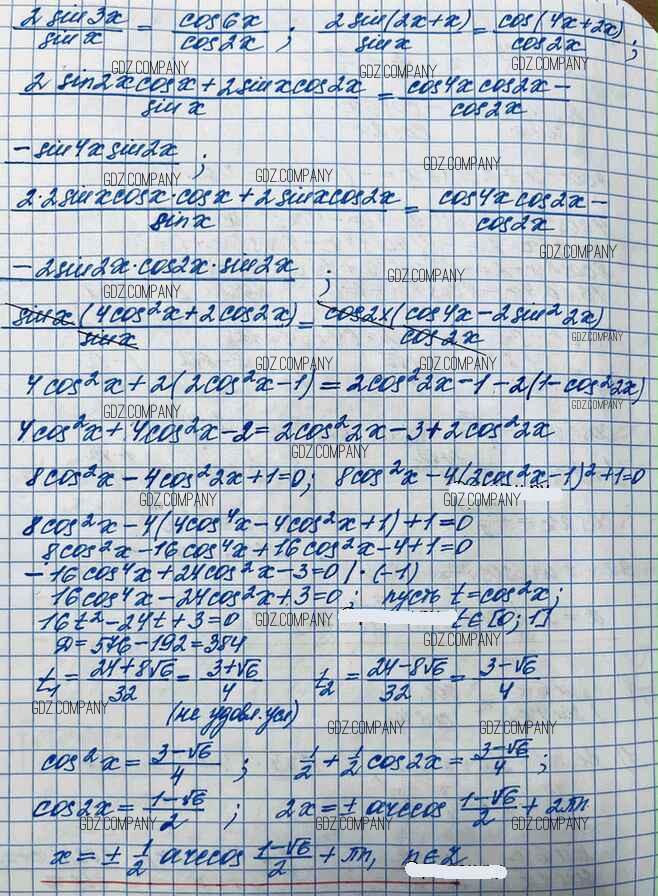 2 sin3x / sin x = cos6x / cos2x ; 2 sin(2x+x) / sin x = cos(4x+2x) / cos2x ;
GDZ.COMPANY GDZ.COMPANY GDZ.COMPANY
2 sin2x cosx + 2 sinx cos2x / sin x = cos4x cos2x − / cos2x
− sin4x sin2x ;
GDZ.COMPANY GDZ.COMPANY GDZ.COMPANY
2·2 sinx cosx·cosx + 2 sinx cos2x / sinx = cos4x cos2x − / cos2x
GDZ.COMPANY
− 2 sin2x·cos2x·sin2x ;
GDZ.COMPANY GDZ.COMPANY
sinx (4cos²x + 2cos2x) / sinx = cos2x (cos4x − 2sin²2x) / cos2x
GDZ.COMPANY GDZ.COMPANY GDZ.COMPANY
4cos²x + 2(2cos²x−1) = 2cos²2x − 1 − 2(1−cos²2x)
GDZ.COMPANY GDZ.COMPANY
4cos²x + 4cos²x − 2 = 2cos²2x − 3 + 2cos²2x
GDZ.COMPANY
8cos²x − 4cos²2x + 1 = 0; 8cos²x − 4(2cos²x−1)² + 1 = 0
GDZ.COMPANY GDZ.COMPANY
8cos²x − 4(4cos⁴x − 4cos²x + 1) + 1 = 0
8cos²x − 16cos⁴x + 16cos²x − 4 + 1 = 0
− 16cos⁴x + 24cos²x − 3 = 0 | · (−1)
16cos⁴x − 24cos²x + 3 = 0 ; пусть t = cos²x ;
16t² − 24t + 3 = 0 GDZ.COMPANY t ∈ [0; 1]
D = 576 − 192 = 384 GDZ.COMPANY
t₁ = 24+8√6 / 32 = 3+√6 / 4 t₂ = 24−8√6 / 32 = 3−√6 / 4
GDZ.COMPANY (не удовл. усл) GDZ.COMPANY GDZ.COMPANY
cos²x = 3−√6 / 4 ; 1/2 + 1/2 cos2x = 3−√6 / 4 ;
cos2x = 1−√6 / 2 ; 2x = ± arccos 1−√6 / 2 + 2πn
GDZ.COMPANY GDZ.COMPANY GDZ.COMPANY
x = ± 1/2 arccos 1−√6 / 2 + πn, n ∈ Z